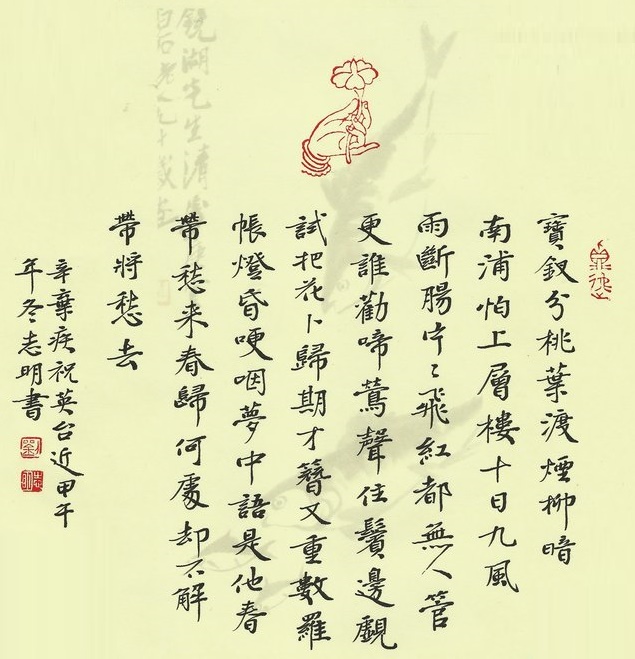 寶釵分桃葉渡煙柳暗
南浦怕上層樓十日九風
雨斷腸片〻飛紅都無人管
更誰勸啼鶯聲住鬢邊覷
試把花卜歸期才簪又重數羅
帳燈昏哽咽夢中語是他春
帶愁来春歸何處却不解
帶將愁去
辛棄疾祝英台近甲午
年冬志明書
鏡湖先生清
白石老人